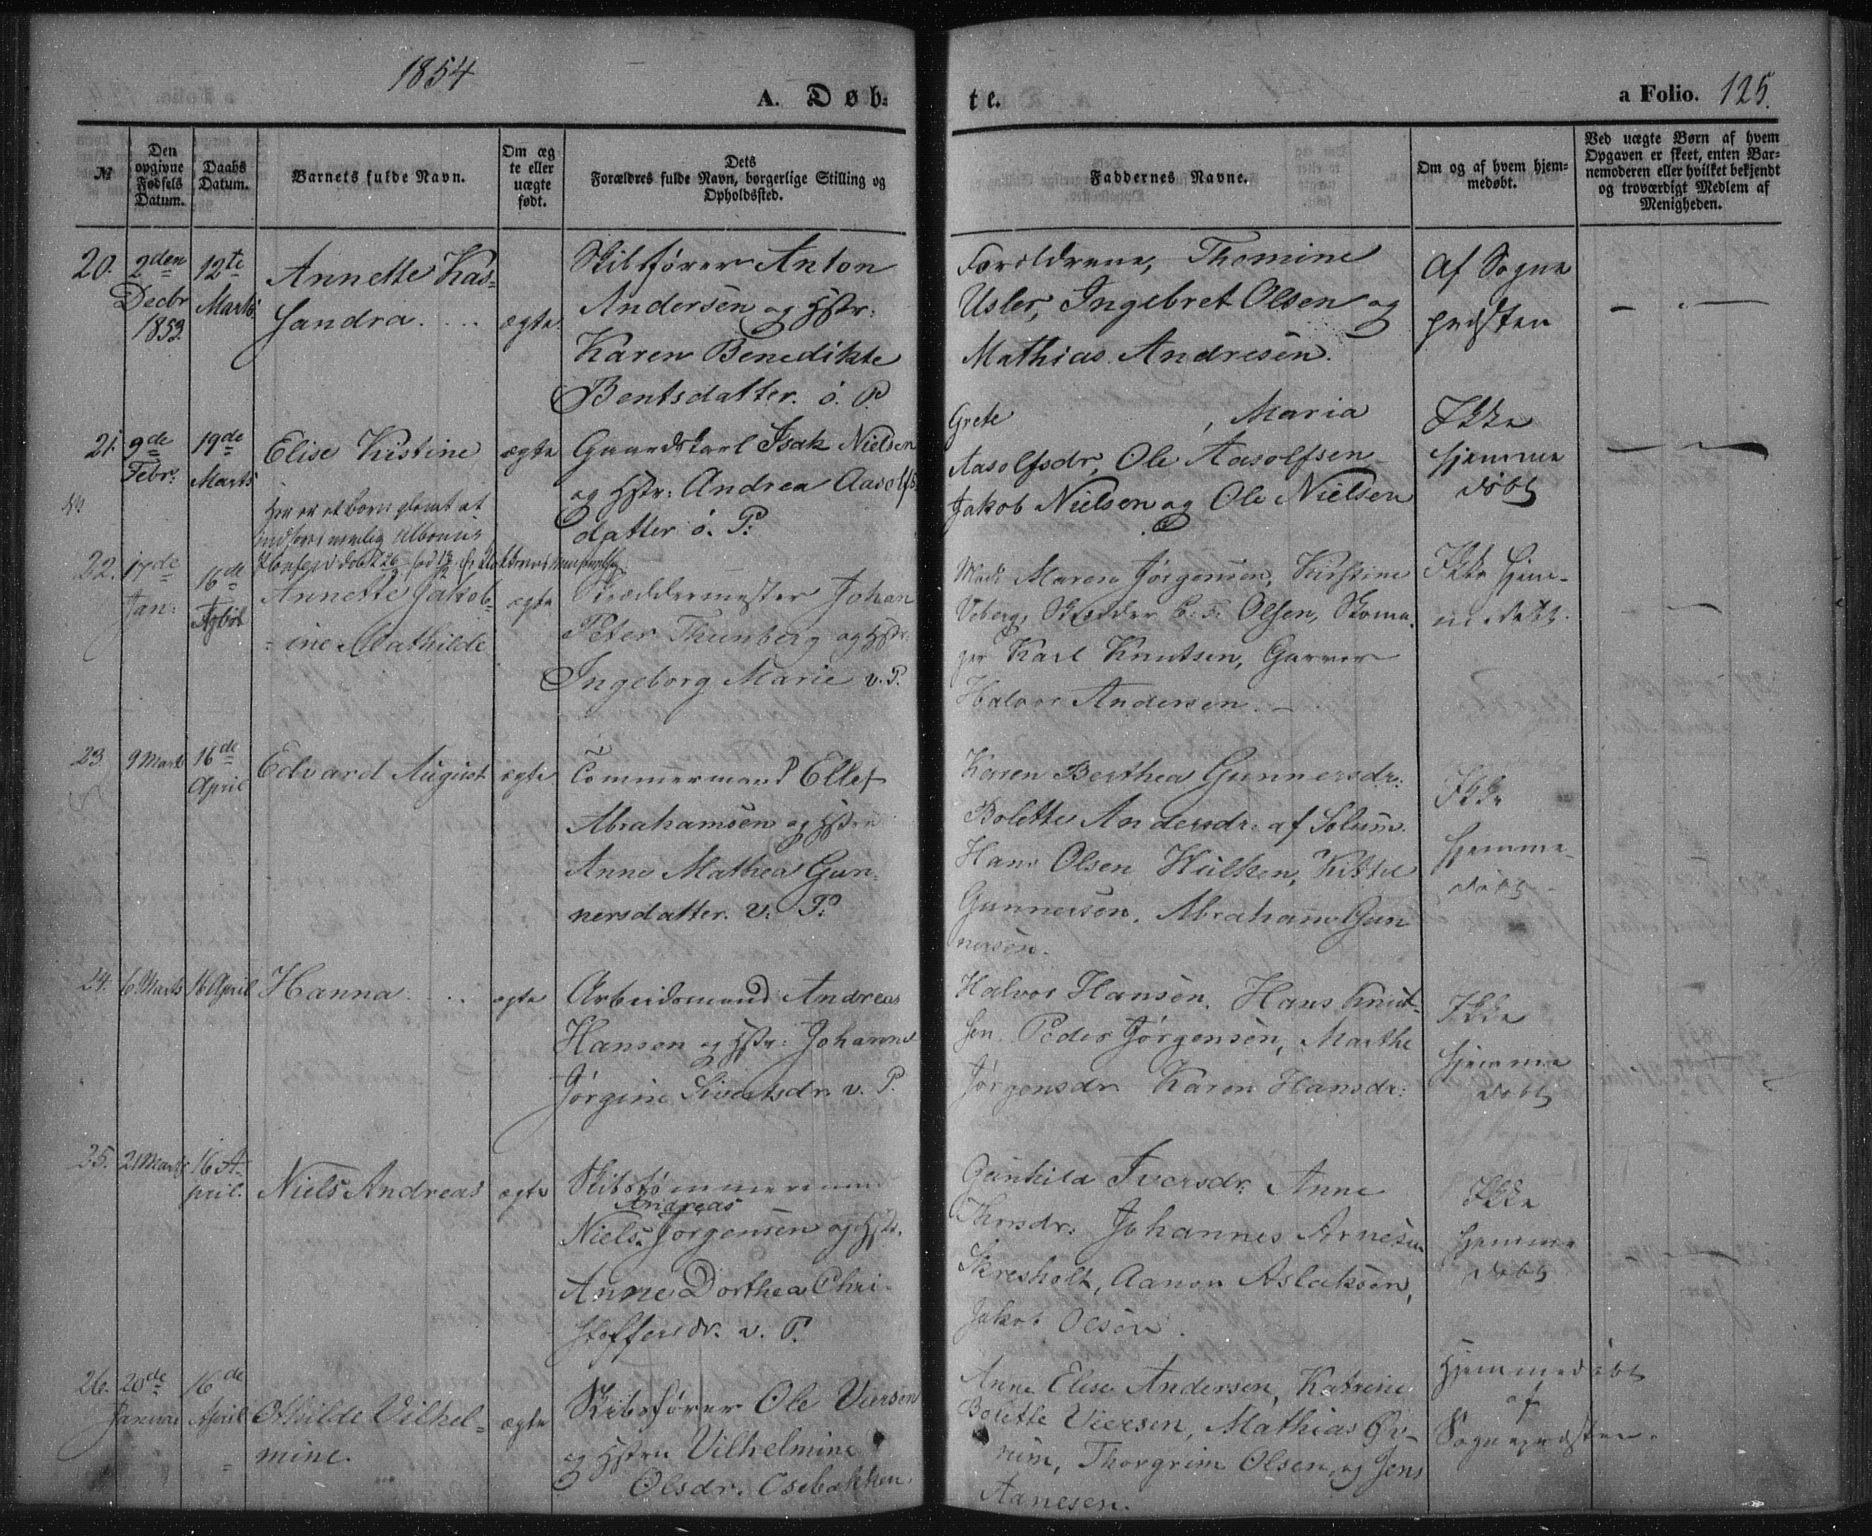 1854
A. Døb-
te.
a Folio. 125.
№
Den opgivne Fødsels Datum.
Daabs Datum.
Barnets fulde Navn.
Om ægte eller uægte født.
Dets Forældres fulde Navn, borgerlige Stilling og Opholdssted.
Faddernes Navne.
Om og af hvem hjemmedøbt.
Ved uægte Børn af hvem Opgaven er skeet, enten Barnemoderen eller hvilket bekjendt og troværdigt Medlem af Menigheden.
20. 2den Decbr 1853. 12te Marts
Annette Kas-
sandra.
ægte.
Skibsfører Anton
Andersen og Hstr:
Karen Benedikte
Bentsdatter. ø. P.
Forældrene, Thomine
Usler, Ingebret Olsen og
Mathias Andresen.
Af Sogne
præsten
21. 9de Febr. 19de Marts
Elise Kristine
ægte
Gaardskarl Isak Nielsen
og Hstr: Andrea Aasolfs
datter ø. P.
Grete , Maria
Aasolfsdr, Ole Aasolfsen
Jakob Nielsen og Ole Nielsen
Ikke
hjemme
døbt
Her er et Barn glemt at
indføres nemlig Albonius
22. 17de Jan: 16de April
Annette Jakob-
ine Mathilde
ægte
Skræddermester Johan
Peter Thunberg og Hstr:
Ingeborg Marie v. P.
Maren Jørgensen, Kirstine
Veberg, Skredder Olsen, Skoma-
ger Karl Knutsen, Garver
Halvor Andersen.
Ikke hjem-
medøbt.
23. 9 Marts 16de April
Edvard August
ægte
Tømmermand Ellef
Abrahamsen og Hstru
Anne Mathea Gun-
nersdatter. v. P.
Karen Berthea Gunnersdr:
Bolette Andersdr. af Solum.
Hans Olsen Hulken, Kittel
Gunnersen. Abraham Gun
nersen.
Ikke
hjemme-
døbt
24. 6 Marts 16 April
Hanna.
ægte
Arbeidsmand Andreas
Hansen og Hstr: Johanne
Jørgine Sivertsdr. v. P.
Halvor Hansen. Hans Knut-
sen. Peder Jørgensen, Marthe
Jørgensdr Karen Hansdr:
Ikke
hjemme
døbt
25. 21 Marts 16 A-
pril.
Niels Andreas
ægte
Skibstømmermand
Andreas
Niels Jørgensen og Hstr.
Anne Dorthea Chri-
stoffersdr. v. P.
Gunhild Iversdr. Anne
Thorsdr. Johannes Arnesen
Skresholt, Aanon Aslaksen,
Jakob Olsen.
Ikke
hjemme
døbt
26. 20de Januar 16de April
Othilde Vilhel-
mine.
ægte
Skibsfører Ole Viersen
og Hstru Vilhelmine
Olsdr. Osebakken
Anne Elise Andersen, Katrine
Bolette Viersen, Mathias Øv-
rum, Thorgrim Olsen, og Jens
Aanesen.
Hjemmedøbt
af
Sognepræsten.